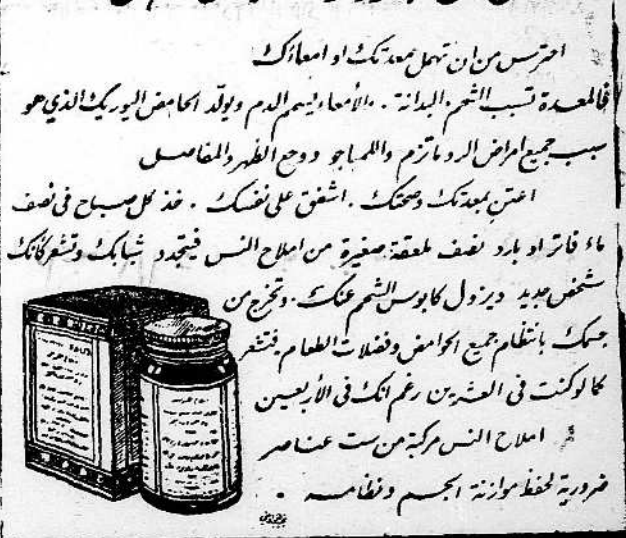 احترس من ان تهمل معدتك او امعاءك
فالمعدة تسبب الشحم البدانة . والأمعاء تسمم الدم وتولد الحامض البوريك الذي هو
سبب جميع امراض الروماتزم واللمباجو ووجع الظهر والمفاصل
اعتن بمعدتك وصحتك . اشفق على نفسك . خذ كل صباح في نصف
ماء فاتر او بارد نصف ملعقة صغيرة من املاح النس فيتجدد شبابك وتشعر كأنك
شخص جديد ويزول كابوس الشحم عنك وتخرج من
جسمك بانتظام جميع الحوامض وفضلات الطعام فتشعر
كما لو كنت في العشرين رغم انك في الأربعين
املاح النس مركبة من ست عناصر
ضرورية لحفظ موازنة الجسم ونظامه .